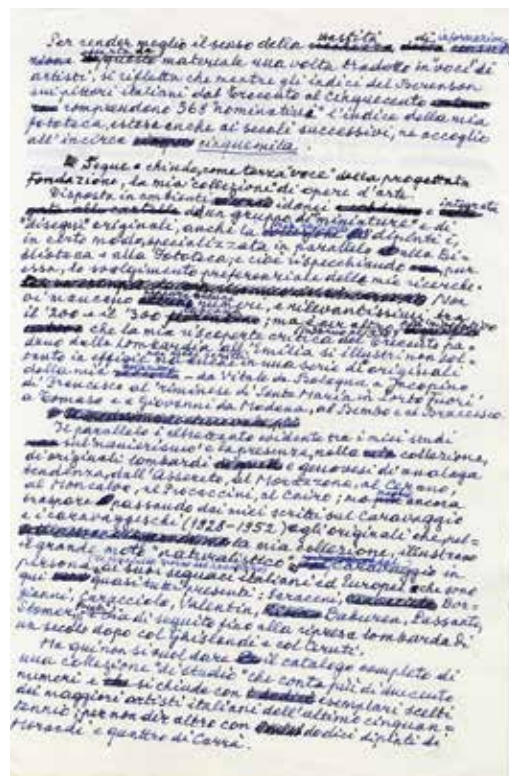 Per render meglio il senso della vastità di informazione
questo materiale una volta tradotto in "voci" di
artisti, si rifletta che mentre gli indici del Berenson
sui pittori italiani dal Trecento al Cinquecento
comprendono 368 nominativi l'indice della mia
fototeca, estesa anche ai secoli successivi, ne accoglie
all'incirca cinquemila.
Segue e chiude, come terza "voce" della progettata
Fondazione, la mia collezione di opere d'arte.
Disposta in ambienti idonei e integrata
da un gruppo di "miniature" e di
disegni originali, anche la dipinti è,
in certo modo, specializzata in parallelo alla Bi-
blioteca e alla Fototeca; e ciò rispecchiando pur
essa, lo svolgimento preferenziale delle mie ricerche.
Non
vi mancano numeri, e rilevantissimi, tra
il '200 e il '300; ma
che la mia riscoperta critica del Trecento pa-
dano dalla Lombardia all' Emilia si illustri non sol-
tanto in effigie ma anche in una serie di originali
della mia - da Vitale da Bologna a Jacopino
di Francesco al riminese di Santa Maria in Porto Fuori
a Tomaso e a Giovanni da Modena, al Bembo e al Braccesco.
Il parallelo è altrettanto evidente tra i miei studi
sul "manierismo" e la presenza, nella collezione,
di originali lombardi e genovesi di analoga
tendenza, dall'Assereto, al Morazzone, al Cerano,
al Moncalvo, al Procaccini, al Cairo; ma ancora
traspare passando dai miei scritti sul Caravaggio
e i caravaggeschi (1928-1952) agli originali che, nel-
la mia collezione, illustrano
il grande moto "naturalistico" Caravaggio in
persona, ai suoi seguaci italiani ed Europei, che sono
qui quasi tutti presenti: Saraceni, Bor-
gianni, Caracciolo, Valentin, Baburen, Passante,
Stomer, e via di seguito fino alla ripresa lombarda di
un secolo dopo col Ghislandi e col Ceruti.
Ma qui non si vuol dare il catalogo completo di
una collezione "di studio" che conta più di duecento
numeri e si chiude con esemplari scelti
dei maggiori artisti italiani dell'ultimo cinquan-
tennio; per non dir altro con dodici dipinti di
Morandi e quattro di Carrà.